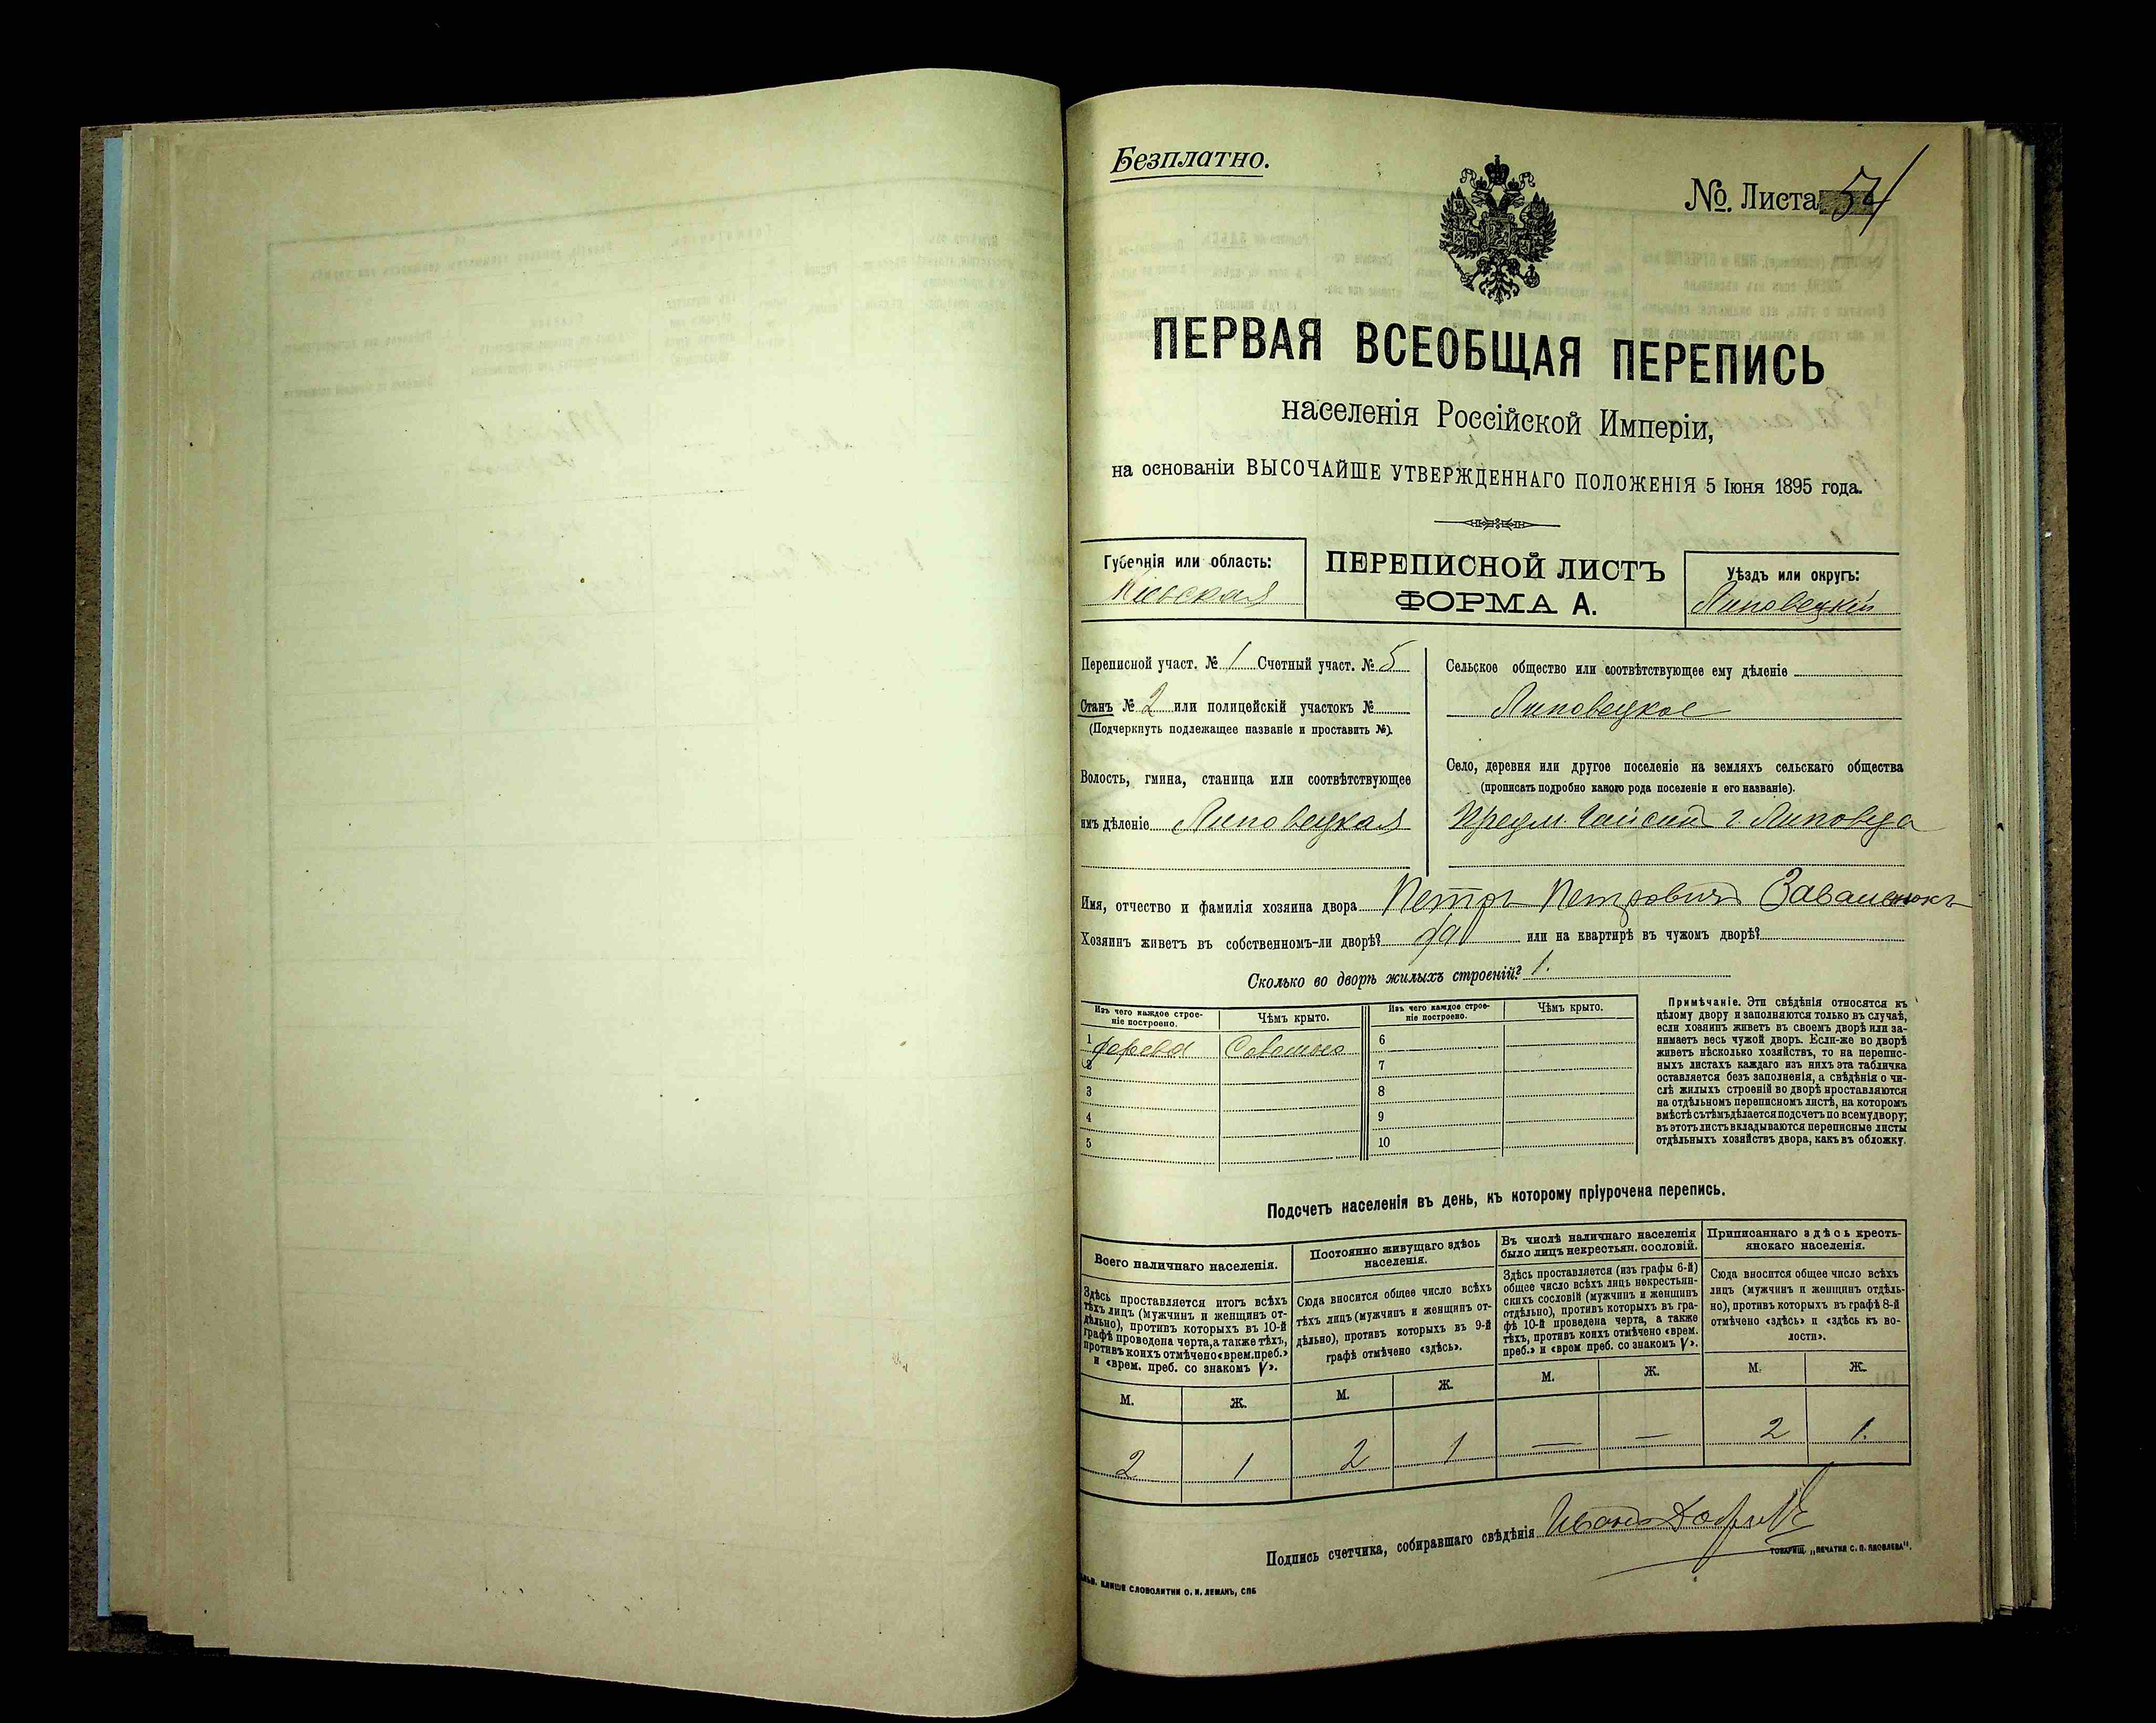 Безплатно.
№. Листа 54
ПЕРВАЯ ВСЕОБЩАЯ ПЕРЕПИСЬ
населенія Россійской Имперіи,
на основаніи ВЫСОЧАЙШЕ УТВЕРЖДЕННАГО ПОЛОЖЕНІЯ 5 Іюня 1895 года.
Губернія или область:
Кіевская
ПЕРЕПИСНОЙ ЛИСТЪ
ФОРМА А.
Уѣздъ или округъ:
Липовецкій
Переписной участ. № 1 Счетный участ. № 5
Станъ № 2 или полицейскій участокъ №
(Подчеркнуть подлежащее названіе и проставить №).
Волость, гмина, станица или соотвѣтствующее
имъ дѣленіе Липовецкая
Сельское общество или соотвѣтствующее ему дѣленіе
Липовецкое
Село, деревня или другое поселеніе на земляхъ сельскаго общества
(прописать подробно какого рода поселеніе и его названіе).
г. Липовца
Имя, отчество и фамилія хозяина двора Петръ Петровичъ Завальнюкъ
Хозяинъ живетъ въ собственномъ-ли дворѣ? да или на квартирѣ въ чужомъ дворѣ?
Сколько во дворѣ жилыхъ строеній? 1.
Изъ чего каждое строе-
ніе построено.
Чѣмъ крыто.
Изъ чего каждое строе-
ніе построено.
Чѣмъ крыто.
1 дерева Соломою 6
2 7
3 8
4 9
5 10
Примѣчаніе. Эти свѣдѣнія относятся къ
цѣлому двору и заполняются только въ случаѣ,
если хозяинъ живетъ въ своемъ дворѣ или за-
нимаетъ весь чужой дворъ. Если-же во дворѣ
живетъ нѣсколько хозяйствъ, то на перепис-
ныхъ листахъ каждаго изъ нихъ эта табличка
оставляется безъ заполненія, а свѣдѣнія о чи-
слѣ жилыхъ строеній во дворѣ проставляются
на отдѣльномъ переписномъ листѣ, на которомъ
вмѣстѣ съ тѣмъ дѣлается подсчетъ по всему двору;
въ этотъ листъ вкладываются переписные листы
отдѣльныхъ хозяйствъ двора, какъ въ обложку.
Подсчетъ населенія въ день, къ которому пріурочена перепись.
Всего наличнаго населенія.
Здѣсь проставляется итогъ всѣхъ
тѣхъ лицъ (мужчинъ и женщинъ от-
дѣльно), противъ которыхъ въ 10-й
графѣ проведена черта, а также тѣхъ,
противъ коихъ отмѣчено «врем. преб.»
и «врем. преб. со знакомъ V».
Постоянно живущаго здѣсь
населенія.
Сюда вносится общее число всѣхъ
тѣхъ лицъ (мужчинъ и женщинъ от-
дѣльно), противъ которыхъ въ 9-й
графѣ отмѣчено «здѣсь».
Въ числѣ наличнаго населенія
было лицъ некрестьян. сословій.
Здѣсь проставляется (изъ графы 6-й)
общее число всѣхъ лицъ некрестьян-
скихъ сословій (мужчинъ и женщинъ
отдѣльно), противъ которыхъ въ гра-
фѣ 10-й проведена черта, а также
тѣхъ, противъ коихъ отмѣчено «врем.
преб.» и «врем преб. со знакомъ V».
Приписаннаго здѣсь кресть-
янскаго населенія.
Сюда вносится общее число всѣхъ
лицъ (мужчинъ и женщинъ отдѣль-
но), противъ которыхъ въ графѣ 8-й
отмѣчено «здѣсь» и «здѣсь къ во-
лости».
М. Ж. М. Ж. М. Ж. М. Ж.
2 1 2 1 — — 2 1.
Подпись счетчика, собиравшаго свѣдѣнія Иванъ
ТОВАРИЩ. „ПЕЧАТНЯ С. П. ЯКОВЛЕВА".
КЛИШЕ СЛОВОЛИТНИ О. И. ЛЕМАНЪ, СПБ